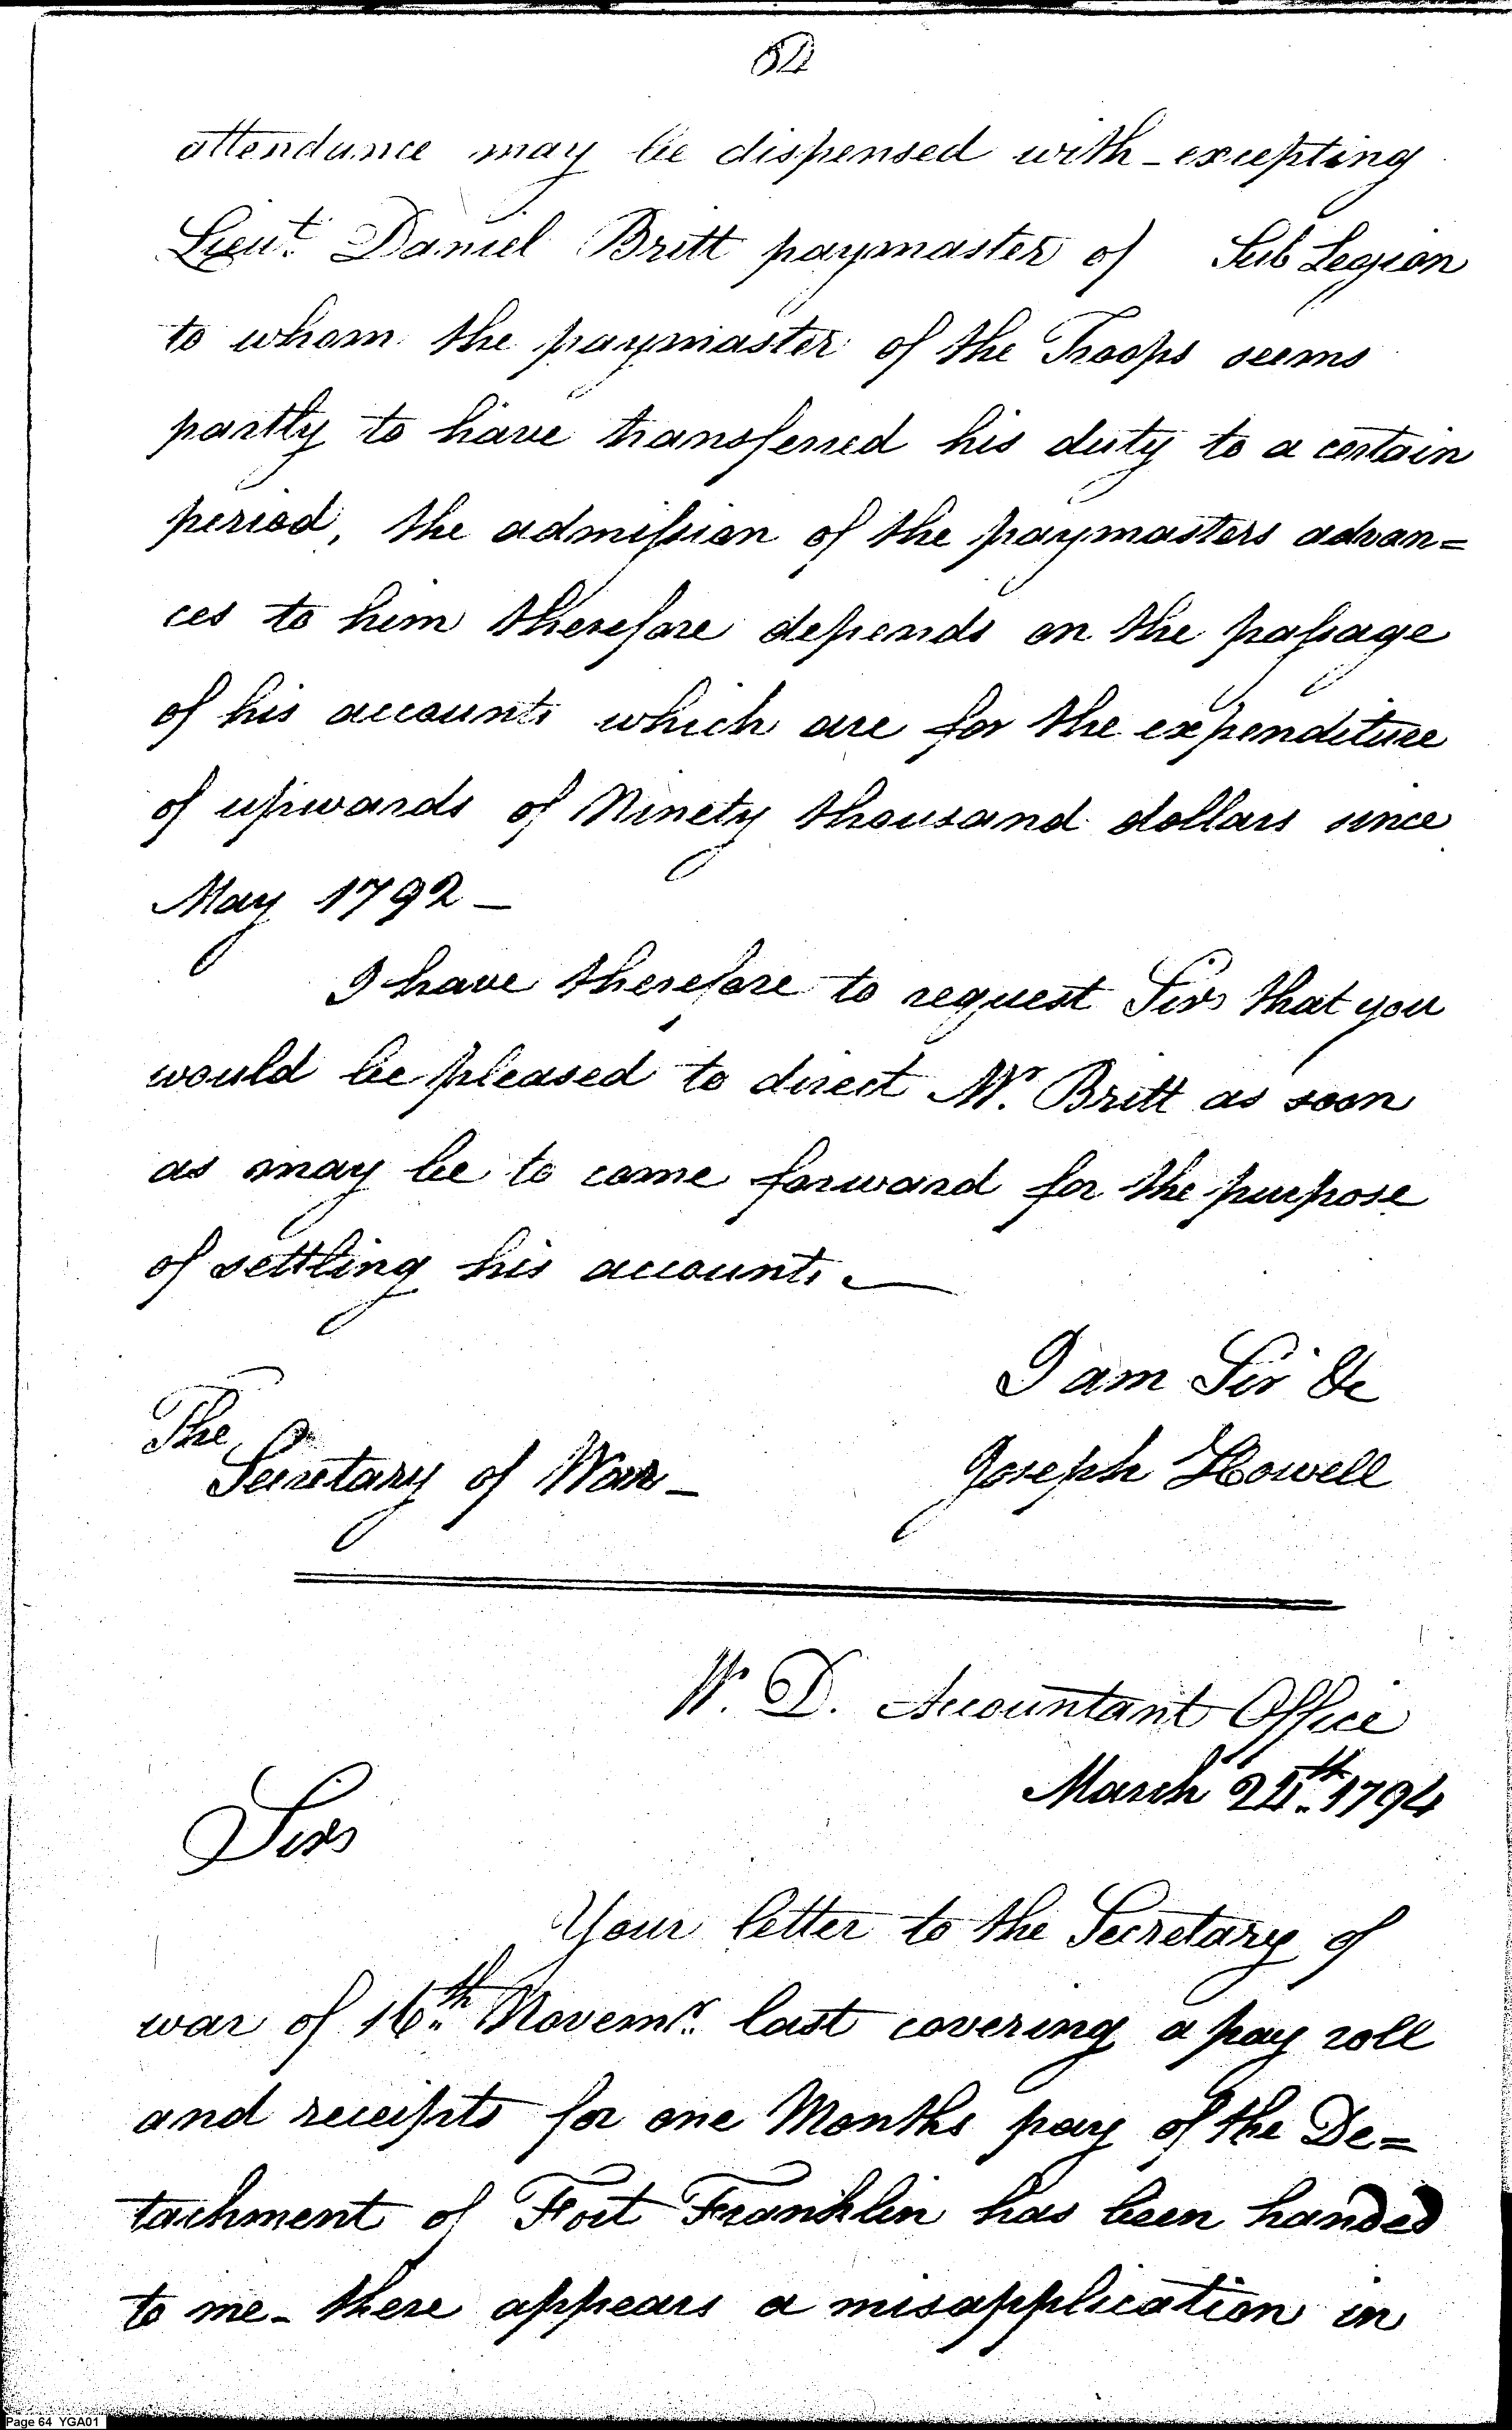 64
attendance may be dispensed with - excepting
Lieut. Daniel Britt paymaster of Sub Legion
to whom the paymaster of the Troops seems
partly to have transferred his duty to a certain
period, the admission of the paymasters advan=
ces to him therefore depends on the passage
of his accounts which are for the expenditure
of upwards of Ninety thousand dollars since
May 1792 -
I have therefore to request Sir that you
would be pleased to direct Mr. Britt as soon
as may be to come forward for the purpose
of settling his accounts. -
I am Sir &c
The
Secretary of War - Joseph Howell
W. D. Accountant Office
March 24th. 1794
Sir
Your letter to the Secretary of
war of 16th. Novemr. last covering a pay roll
and receipts for one Months pay of the De=
tachment of Fort Franklin has been handed
to me - there appears a misapplication in
Page 64 YGA01